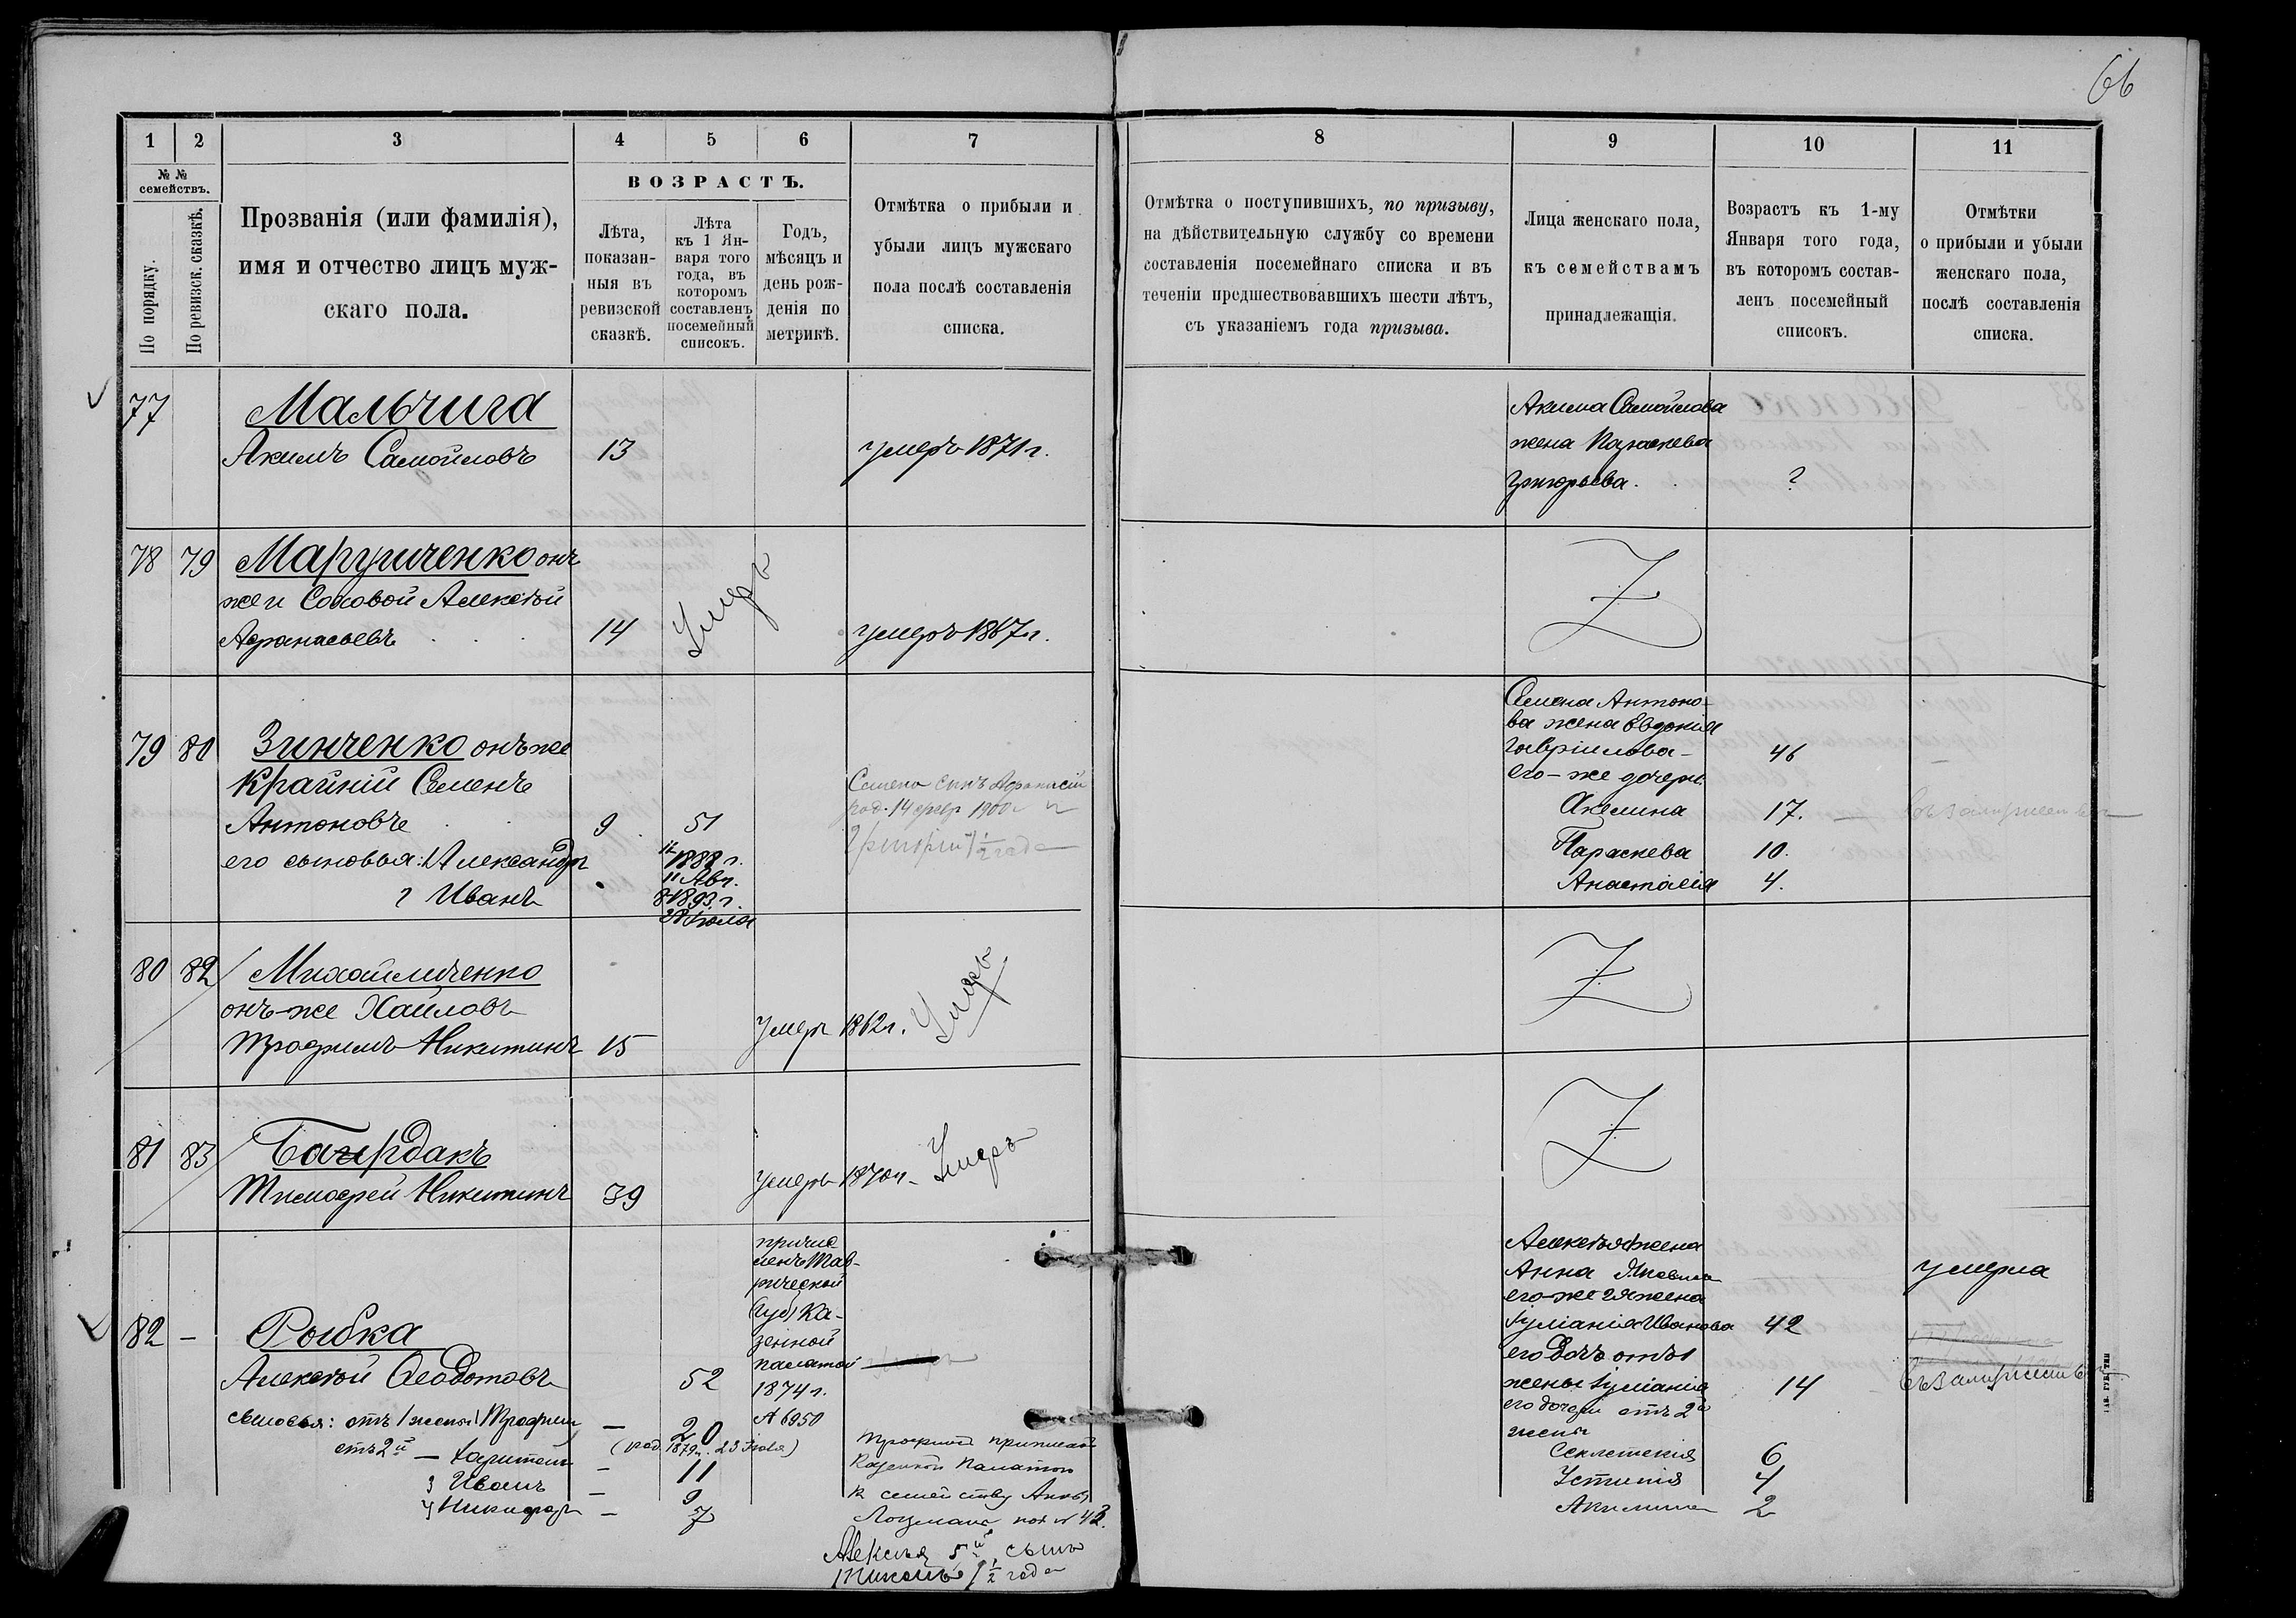 66
1 2 3 4 5 6 7 8 9 10 11
№ № семействъ.
По порядку.
По ревизск. сказкѣ.
Прозванія (или фамилія),
имя и отчество лицъ муж-
скаго пола.
ВОЗРАСТЪ.
Лѣта,
показан-
ныя въ
ревизской
сказкѣ.
Лѣта
къ 1 Ян-
варя того
года, въ
которомъ
составленъ
посемейный
списокъ.
Годъ,
мѣсяцъ и
день рож-
денія по
метрикѣ.
Отмѣтка о прибыли и
убыли лицъ мужскаго
пола послѣ составленія
списка.
Отмѣтка о поступившихъ, по призыву,
на дѣйствительную службу со времени
составленія посемейнаго списка и въ
теченіи предшествовавшихъ шести лѣтъ,
съ указаніемъ года призыва.
Лица женскаго пола,
къ семействамъ
принадлежащія.
Возрастъ къ 1-му
Января того года,
въ которомъ состав-
ленъ посемейный
списокъ.
Отмѣтки
о прибыли и убыли
женскаго пола,
послѣ составленія
списка.
77 Мальчига
Акимъ Самойловъ 13 умеръ 1871 г.
Акима Самойлова
жена Параскева
Григорьева. ?
78 79 Марушченко онъ
же и Соловой Алексѣй
Афанасьевъ 14 Умеръ умеръ 1867 г.
79 80 Зинченко онъ же
Крайній Семенъ
Антоновъ 9 51
его сыновья: 1 Александръ 12 1888 г.
11 Авг.
2 Иванъ 8 1893 г.
28 Іюля
Семена сынъ Афанасій
род. 14 февр 1900 г
Григорій 1/2 года
Семена Антоно-
ва жена Евдокія
Гавріилова - 46
его-же дочери
Акелина 17. въ замужествѣ
Параскева 10.
Анастасія 4.
80 82 Михайличенко
онъ-же Хайловъ
Трофимъ Никитинъ 15 Умеръ 1862 г. Умеръ
81 83
Тимофей Никитинъ 39 умеръ 1870 г. Умеръ
82 - Рыбка
Алексѣй Феодотовъ 52
сыновья: отъ 1 жены 1 Трофим — 20
отъ 2й — Харитонъ (род. 1879 г. 23 ) — 11
3 Иванъ — 9
4 Никифоръ — 7
причис
ленъ Тав-
рической
Губ. Ка-
зенной
палатой
1874 г.
№ 6950
Трофимъ приписанъ
Казенной Палатой
к семейству Анны
Лоцмана под № 43.
Алексѣя 5й сынъ
1 1/2 года
Алексѣя 1 жена
Анна Яковлева умерла
его-же 2я жена
Іуліанія Иванова 42
его дочь отъ 1
жены Іуліанія 14 въ замужествѣ
его дочери отъ 2й
жены
Секлетекія 6
Устинія 4
Акилина 2